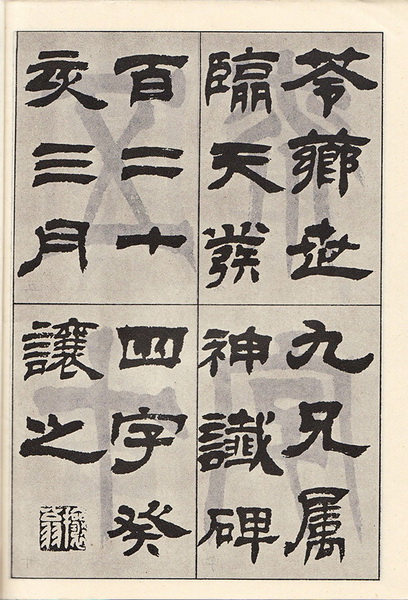 苓薌世九兄属
臨天發神讖碑
百二十四字癸
亥三月讓之